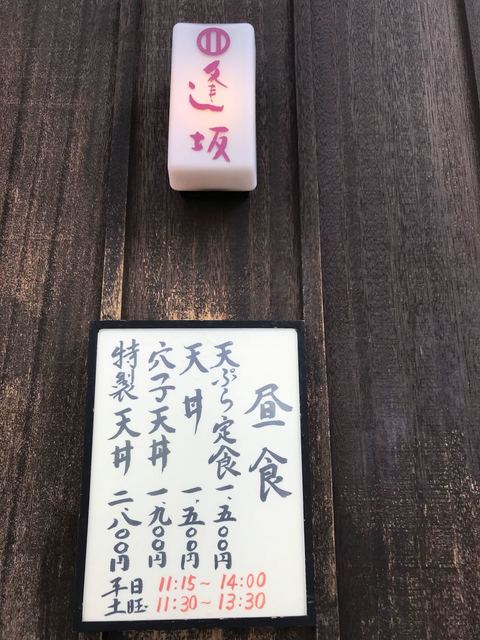 逢坂
昼食
天ぷら定食 一、五〇〇円
天丼 一、五〇〇円
穴子天丼 一、九〇〇円
特製天丼 二、八〇〇円
平日 11:15～14:00
土旺 11:30～13:30